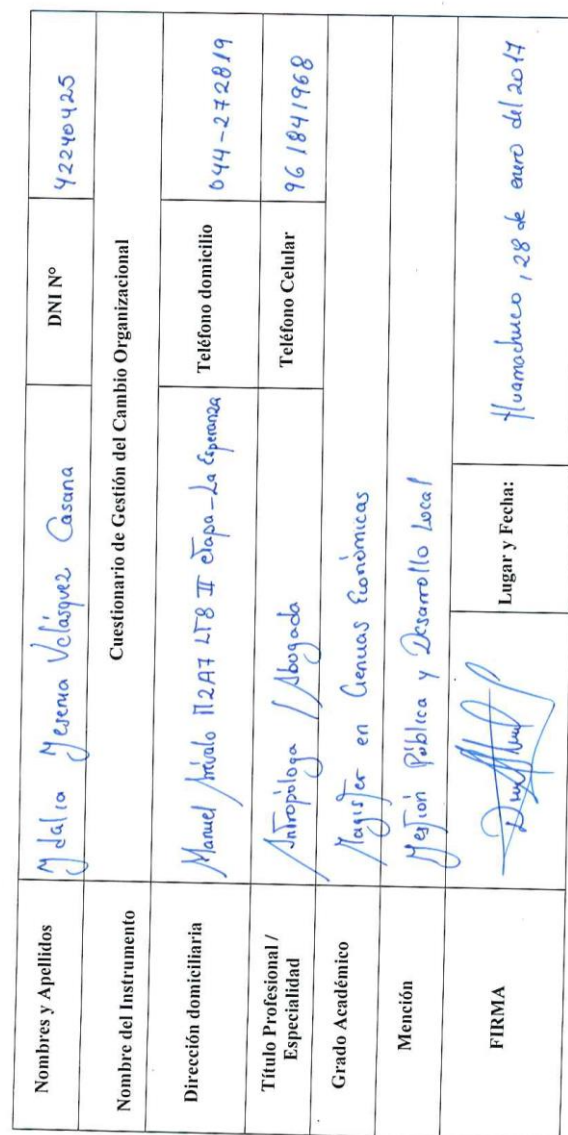 Nombres y Apellidos
Ydalia Yesenia Velásquez Casana
DNI N°
42240425
Nombre del Instrumento
Cuestionario de Gestión del Cambio Organizacional
Dirección domiciliaria
Manuel Arévalo MZA7 LT8 II Etapa - La Esperanza
Teléfono domicilio
044-272819
Título Profesional /
Especialidad
Antropóloga / Abogada
Teléfono Celular
961841968
Grado Académico
Magister en Ciencias Económicas
Mención
Gestión Pública y Desarrollo Local
FIRMA
Lugar y Fecha:
Huamachuco, 28 de enero del 2017